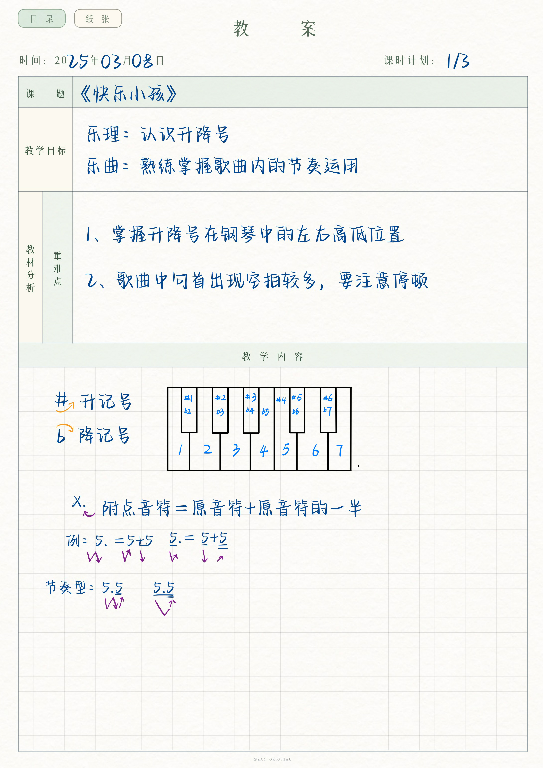 目录 纸张
教 案
时间：2025年03月08日 课时计划：1/3
课 题 《快乐小孩》
教学目标
乐理：认识升降号
乐曲：熟练掌握歌曲内的节奏运用
教材分析
重难点
1、掌握升降号在钢琴中的左右高低位置
2、歌曲中句首出现空拍较多，要注意停顿
教 学 内 容
# 升记号
b 降记号
#1 #2 #3 #4 #5 #6
b2 b3 b4 b5 b6 b7
1 2 3 4 5 6 7
X. 附点音符=原音符+原音符的一半
例：5. =5+5 5.= 5+5
节奏型：5.5 5.5